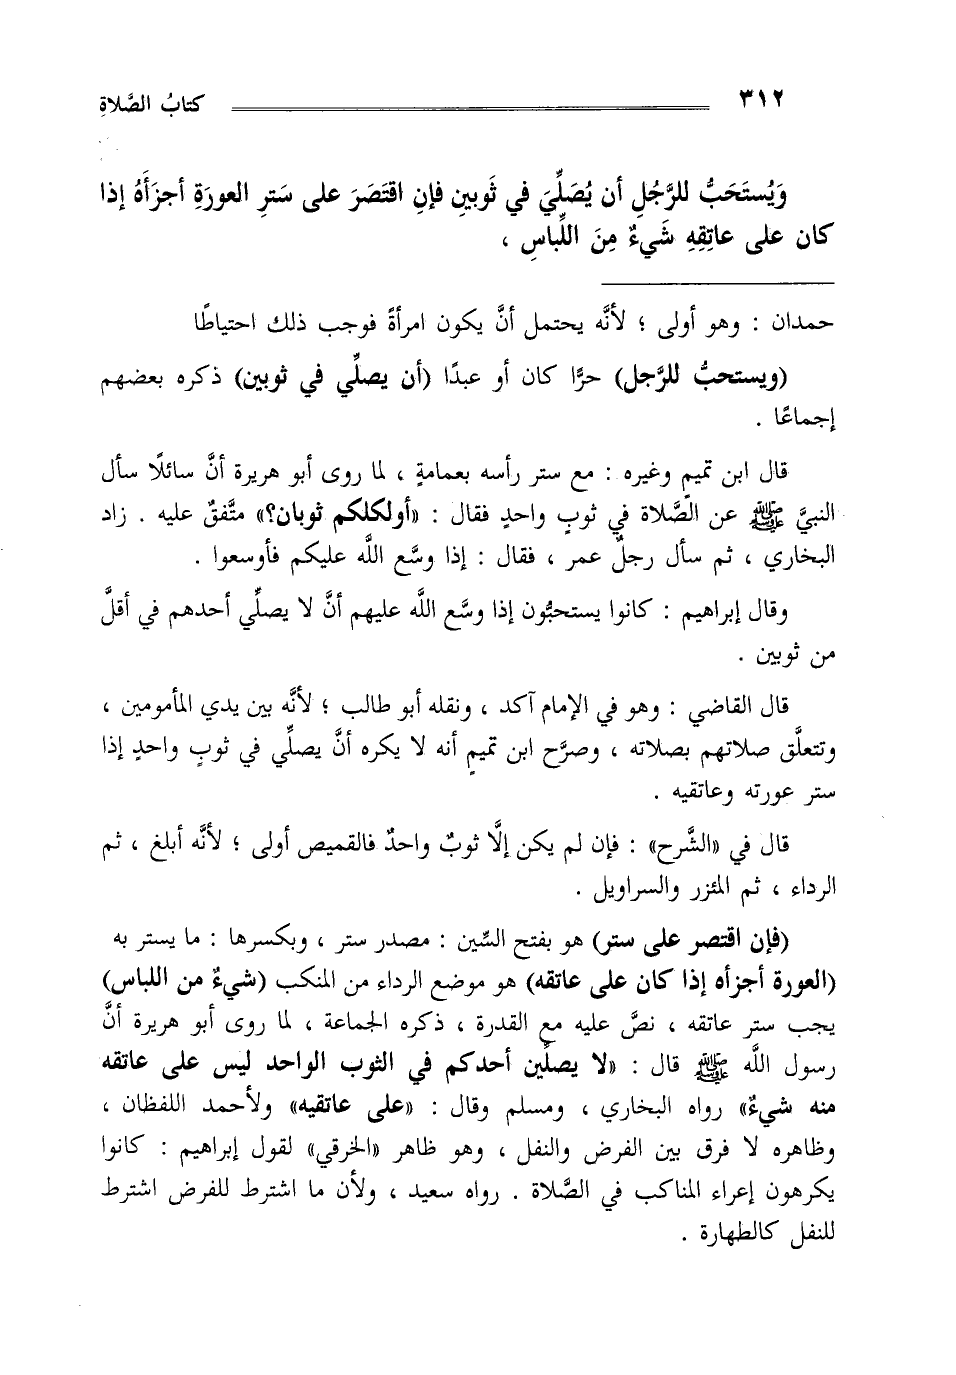 ٣١٢ كتابُ الصَّلاةِ
وَيُستَحَبُّ للرَّجُلِ أن يُصَلِّيَ في ثَوبينِ فإنِ اقتَصَرَ على سَترِ العورَةِ أجزَأَهُ إذا
كان على عاتِقِهِ شَيءٌ مِنَ اللِّباسِ ،
حمدان : وهو أولى ؛ لأنَّه يحتمل أنَّ يكون امرأةً فوجب ذلك احتياطًا
(ويستحبُّ للرَّجل) حرًّا كان أو عبدًا (أن يصلِّي في ثوبين) ذكره بعضهم
إجماعًا .
قال ابن تميمٍ وغيره : مع ستر رأسه بعمامةٍ ، لما روى أبو هريرة أنَّ سائلًا سأل
النبيَّ ﷺ عن الصَّلاة في ثوبٍ واحدٍ فقال : «أولكلكم ثوبان؟» متَّفقٌ عليه . زاد
البخاري ، ثم سأل رجلٌ عمر ، فقال : إذا وسَّع اللَّه عليكم فأوسعوا .
وقال إبراهيم : كانوا يستحبُّون إذا وسَّع اللَّه عليهم أنَّ لا يصلِّي أحدهم في أقلَّ
من ثوبين .
قال القاضي : وهو في الإمام آكد ، ونقله أبو طالب ؛ لأنَّه بين يدي المأمومين ،
وتتعلَّق صلاتهم بصلاته ، وصرَّح ابن تميمٍ أنه لا يكره أنَّ يصلِّي في ثوبٍ واحدٍ إذا
ستر عورته وعاتقيه .
قال في «الشَّرح» : فإن لم يكن إلَّا ثوبٌ واحدٌ فالقميص أولى ؛ لأنَّه أبلغ ، ثم
الرداء ، ثم المئزر والسراويل .
(فإن اقتصر على ستر) هو بفتح السِّين : مصدر ستر ، وبكسرها : ما يستر به
(العورة أجزأه إذا كان على عاتقه) هو موضع الرداء من المنكب (شيءٌ من اللباس)
يجب ستر عاتقه ، نصَّ عليه مع القدرة ، ذكره الجماعة ، لما روى أبو هريرة أنَّ
رسول اللَّه ﷺ قال : «لا يصلِّين أحدكم في الثوب الواحد ليس على عاتقه
منه شيءٌ» رواه البخاري ، ومسلم وقال : «على عاتقيه» ولأحمد اللفظان ،
وظاهره لا فرق بين الفرض والنفل ، وهو ظاهر «الخرقي» لقول إبراهيم : كانوا
يكرهون إعراء المناكب في الصَّلاة . رواه سعيد ، ولأن ما اشترط للفرض اشترط
للنفل كالطهارة .